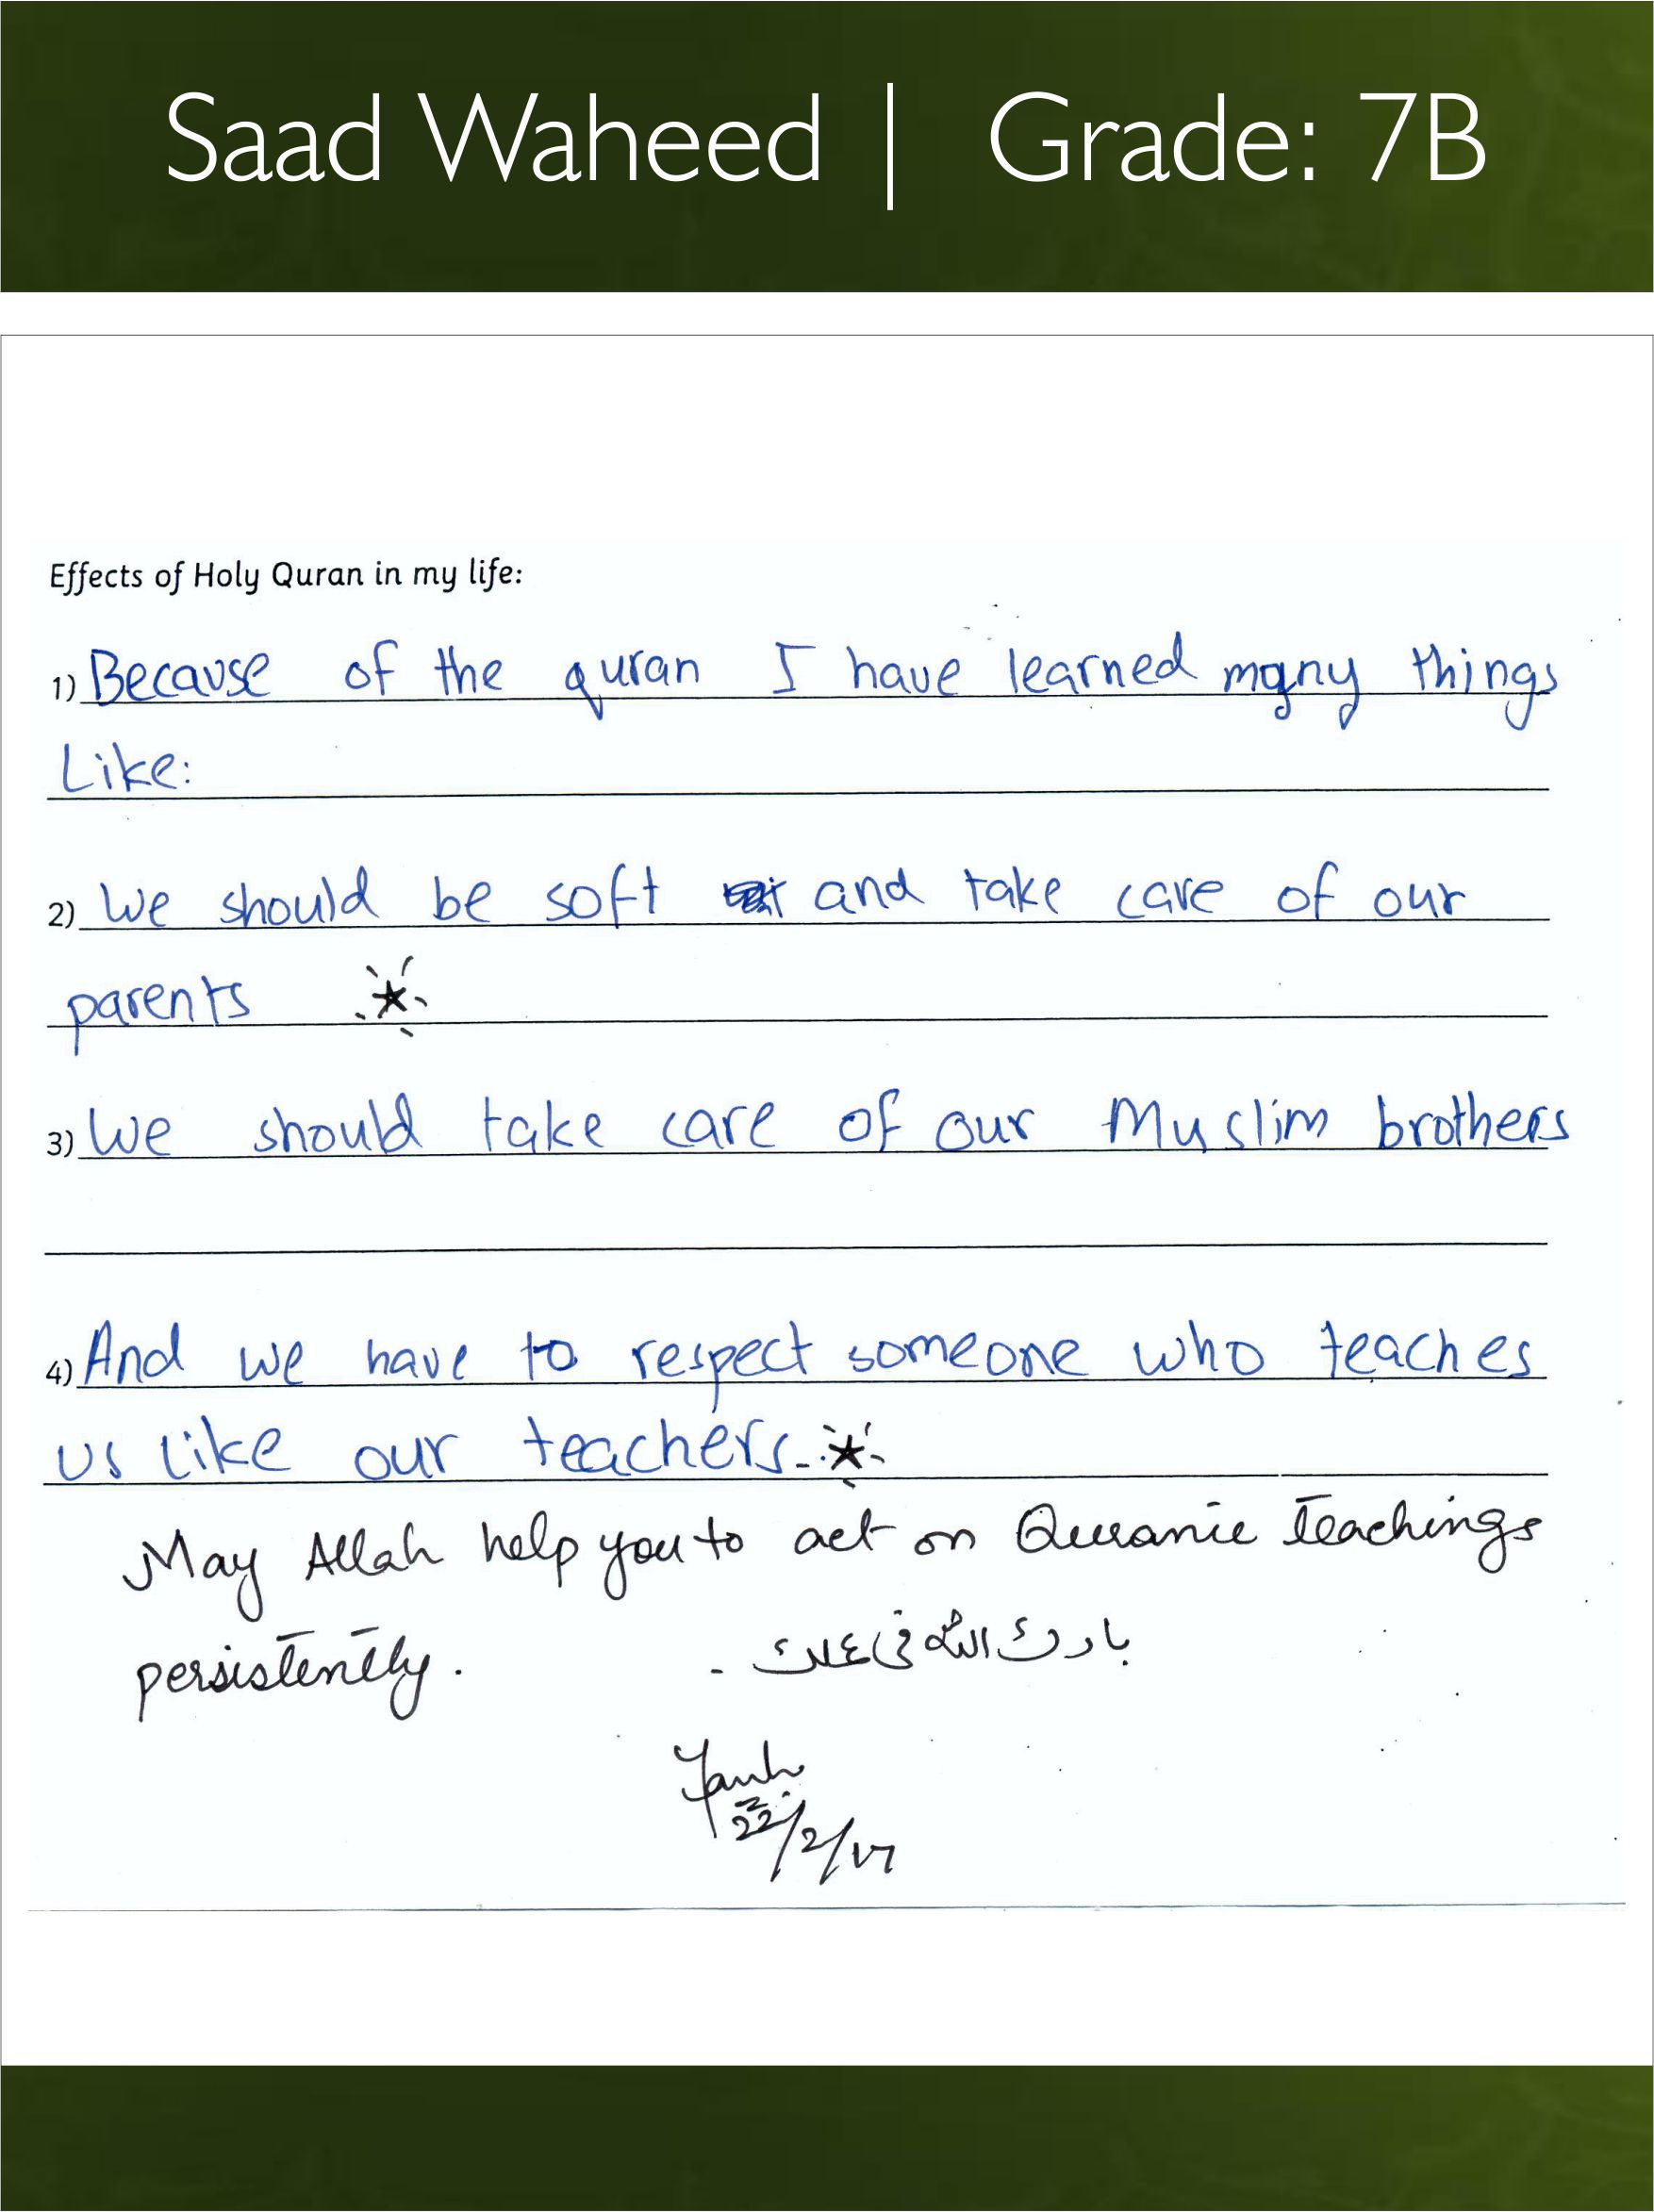 Saad Waheed | Grade: 7B
Effects of Holy Quran in my life:
1) Because of the quran I have learned many things
Like:
2) We should be soft and take care of our
parents
3) We should take care of our Muslim brothers
4) And we have to respect someone who teaches
us like our teachers.
May Allah help you to act on Quranic teachings
persistently.
بارك الله فى علمك -
22/2/17